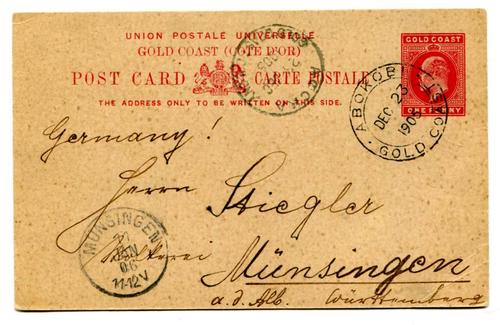 UNION POSTALE UNIVERSELLE
GOLD COAST (CÔTE D'OR)
POST CARD CARTE POSTALE
THE ADDRESS ONLY TO BE WRITTEN ON THIS SIDE.
GOLD COAST
ONE PENNY
ABOKOBI
DEC 23
1905
GOLD COAST
Germany!
Herrn Stiegler
Münsingen
a. d. Alb. Württemberg
MÜNSINGEN
JAN
06
11-12V